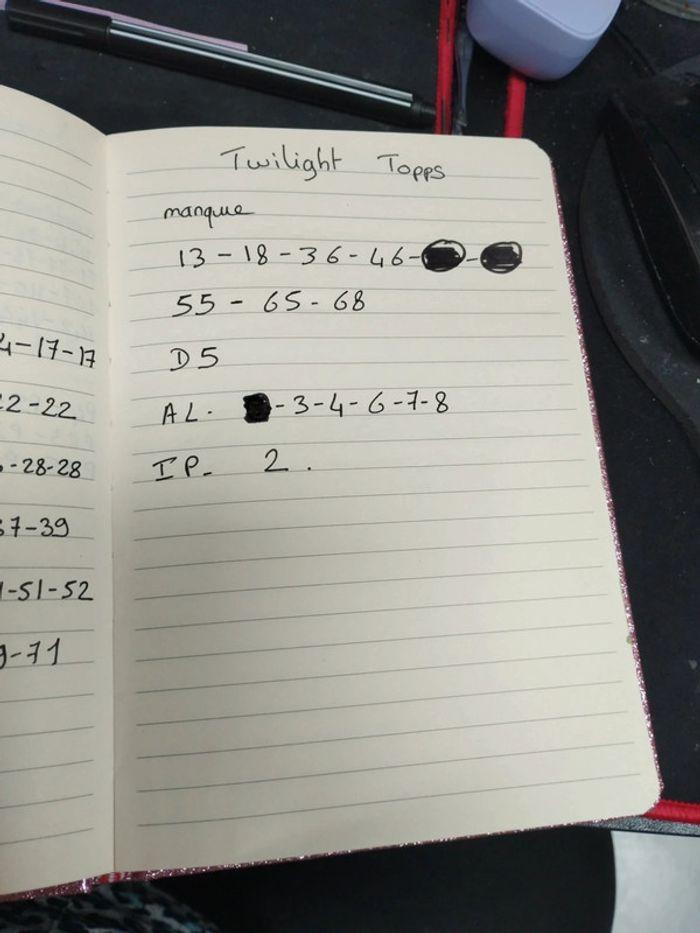 4-17-17
2-22
-28-28
37-39
1-51-52
9-71
Twilight Topps
manque
13-18-36-46-
55-65-68
D5
AL. -3-4-6-7-8
IP- 2.